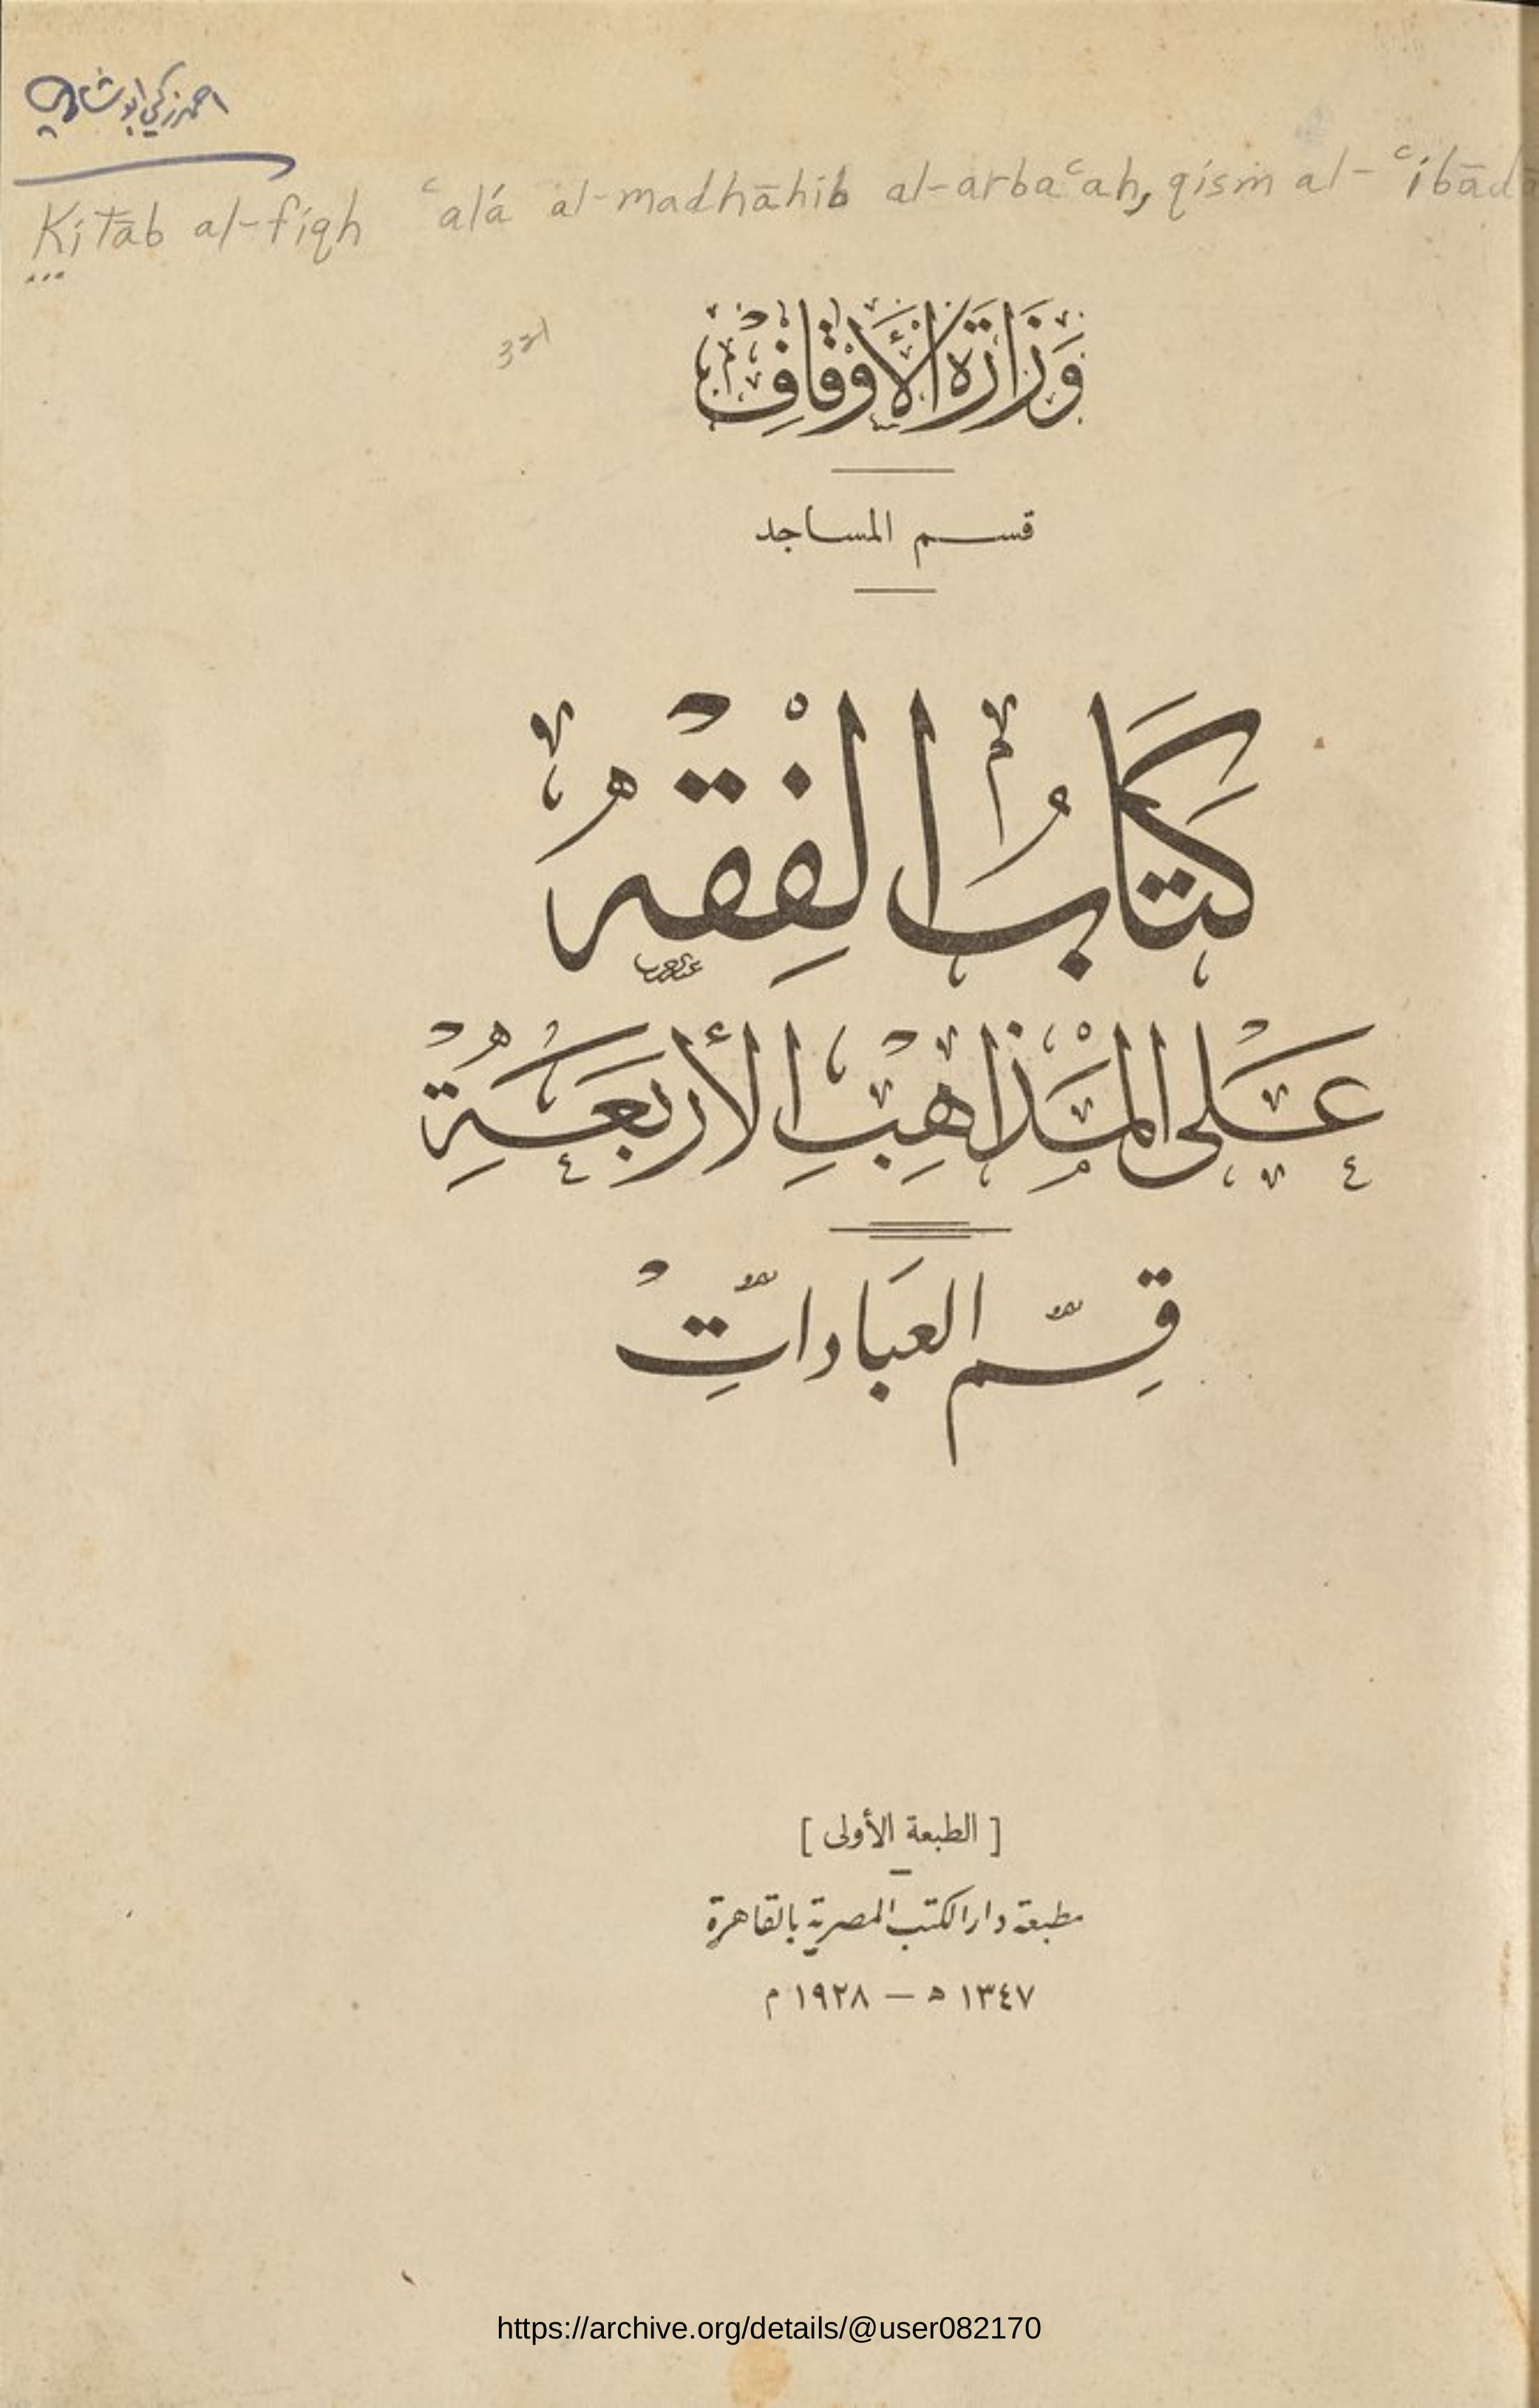 احمد زكي ابو شادي
Kitāb al-fiqh ʿalá al-madhāhib al-arbaʿah, qism al-ʿibād
321
وَزَارَةُ الْأَوْقَافِ
قسم المساجد
كِتَابُ الْفِقْهِ
عَلَى الْمَذَاهِبِ الأَرْبَعَةِ
قِسْم العبَاداتِ
[ الطبعة الأولى ]
مطبعة دار الكتب المصرية بالقاهرة
١٣٤٧ ه — ١٩٢٨ م
https://archive.org/details/@user082170